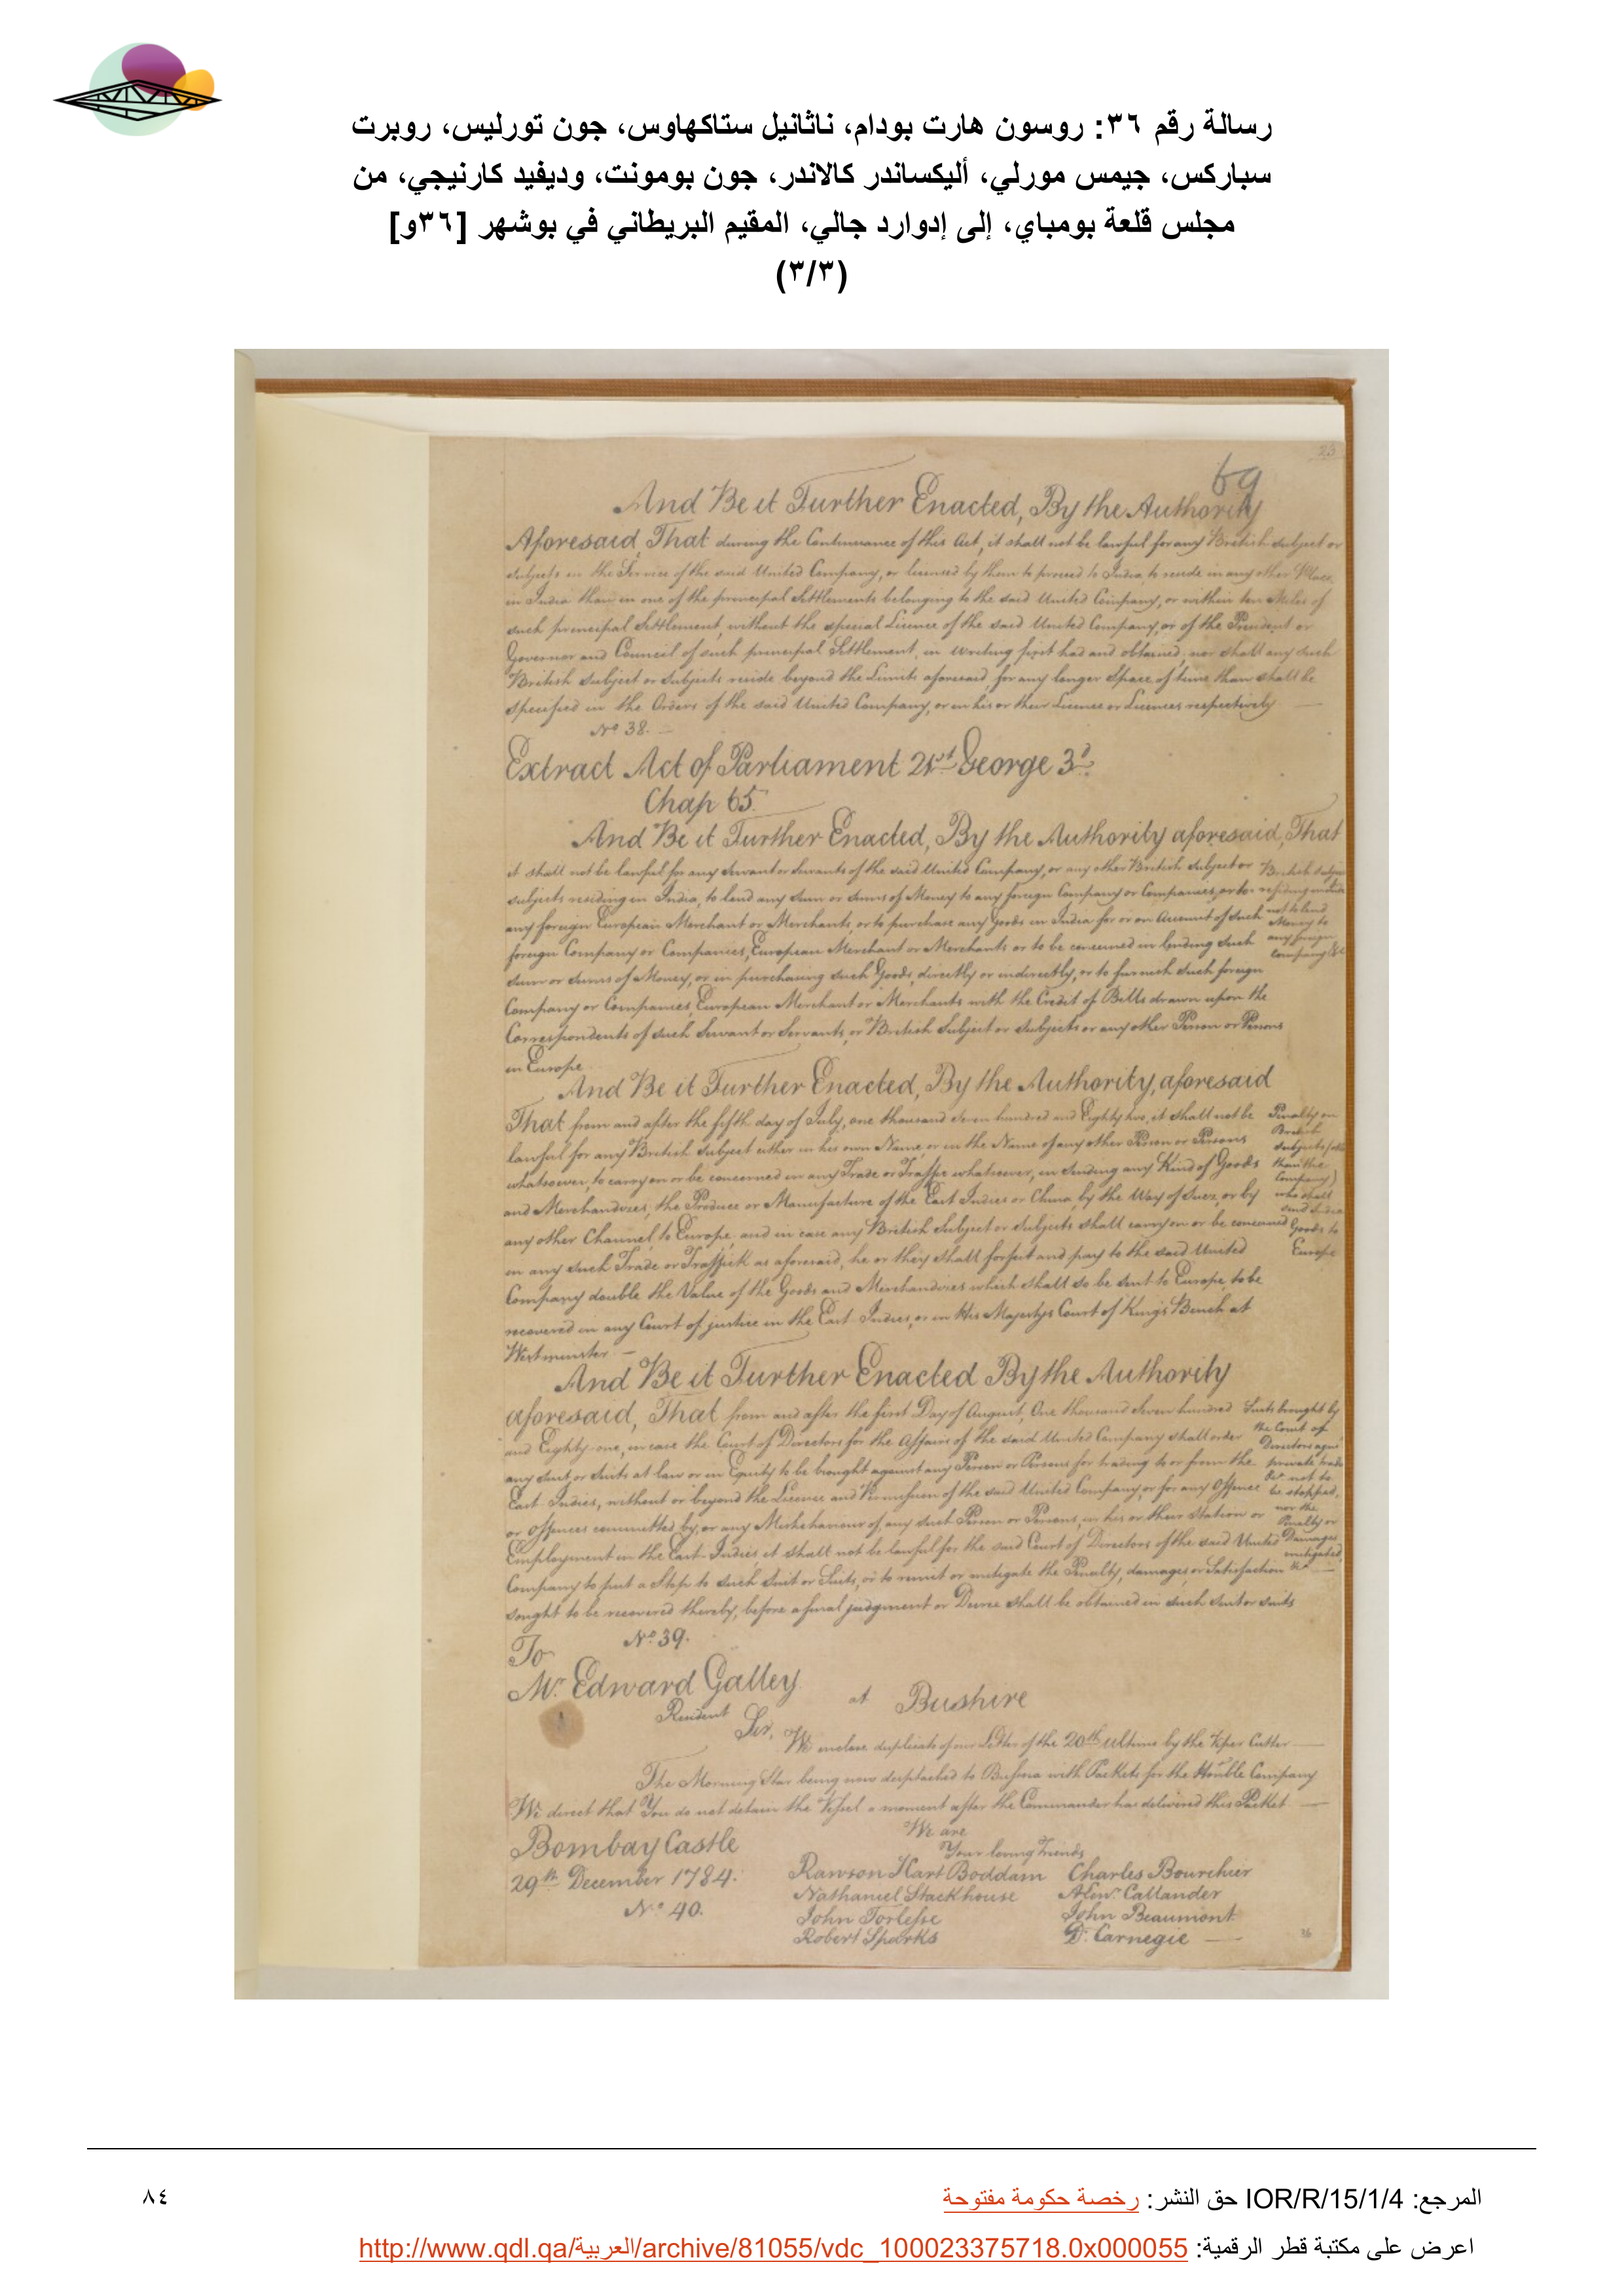 رسالة رقم ٣٦: روسون هارت بودام، ناثانيل ستاكهاوس، جون تورليس، روبرت
سباركس، جيمس مورلي، أليكساندر كالاندر، جون بومونت، وديفيد كارنيجي، من
مجلس قلعة بومباي، إلى إدوارد جالي، المقيم البريطاني في بوشهر [٣٦و]
(٣/٣)
23
69
And Be it Further Enacted, By the Authority
Aforesaid, That during the Continuance of this Act, it shall not be lawful for any British subject or
subjects in the Service of the said United Company, or licensed by them to proceed to India, to reside in any other Place
in India than in one of the principal Settlements belonging to the said United Company, or within ten Miles of
such principal Settlement, without the special Licence of the said United Company, or of the President or
Governor and Council of such principal Settlement, in writing first had and obtained, nor shall any such
British subject or subjects reside beyond the Limits aforesaid, for any longer Space of time than shall be
specified in the Orders of the said United Company, or in his or their Licence or Licences respectively
No 38.
Extract Act of Parliament 21st George 3d.
Chap 65.
And Be it Further Enacted, By the Authority aforesaid, That
it shall not be lawful for any servant or servants of the said United Company, or any other British subject or
subjects residing in India, to lend any sum or sums of Money to any foreign Company or Companies, or to
any foreign European Merchant or Merchants, or to purchase any Goods in India for or on Account of such
foreign Company or Companies, European Merchant or Merchants or to be concerned in lending such
sum or sums of Money, or in purchasing such Goods, directly or indirectly, or to furnish such foreign
Company or Companies, European Merchant or Merchants with the Credit of Bills drawn upon the
Correspondents of such Servant or Servants, or British Subject or subjects or any other Person or Persons
in Europe
British subjects
residing in India
not to lend
Money to
any foreign
Company &c
And Be it Further Enacted, By the Authority, aforesaid
That from and after the fifth day of July, one thousand seven hundred and Eighty two, it shall not be
lawful for any British subject either in his own Name, or in the Name of any other Person or Persons
whatsoever, to carry on or be concerned in any Trade or Traffic whatsoever, in sending any Kind of Goods
and Merchandizes, the Produce or Manufacture of the East Indies or China, by the Way of Suez, or by
any other Channel, to Europe, and in case any British Subject or subjects shall carry on or be concerned
in any such Trade or Traffick as aforesaid, he or they shall forfeit and pay to the said United
Company double the Value of the Goods and Merchandizes which shall so be sent to Europe, to be
recovered in any Court of justice in the East Indies, or in His Majestys Court of Kings Bench at
Westminster
Penalty on
British
subjects
than the
Company)
who shall
send India
Goods to
Europe
And Be it Further Enacted By the Authority
aforesaid, That from and after the first Day of August, One thousand seven hundred
and Eighty one, in case the Court of Directors for the Affairs of the said United Company shall order
any suit or suits at law or in Equity to be brought against any Person or Persons for trading to or from the
East Indies, without or beyond the Licence and Permission of the said United Company, or for any Offence
or Offences committed by, or any Misbehaviour of, any such Person or Persons, in his or their Station or
Employment in the East Indies, it shall not be lawful for the said Court of Directors of the said United
Company to put a Stop to such suit or Suits, or to remit or mitigate the Penalty, damages, or Satisfaction
sought to be recovered thereby, before a final judgment or Decree shall be obtained in such suit or suits
Suits brought by
the Court of
Directors
private trade
&c not to
be stopped,
nor the
Penalty or
Damages
mitigated
&c
No 39.
To
Mr Edward Galley
Resident at Bushire
Sir,
We enclose duplicate of our Letter of the 20th ultimo by the Viper Cutter
The Morning Star being now despatched to Bussora with Packets for the Honble Company
We direct that You do not detain the Vessel a moment after the Commander has delivered this Packet
We are
Your loving Friends
Bombay Castle
29th December 1784.
Rawson Hart Boddam
Nathaniel Stackhouse
John Torlesse
Robert Sparks
Charles Bourchier
Alexr Callander
John Beaumont
D. Carnegie
No 40.
36
المرجع: IOR/R/15/1/4 حق النشر: رخصة حكومة مفتوحة
٨٤
اعرض على مكتبة قطر الرقمية: http://www.qdl.qa/العربية/archive/81055/vdc_100023375718.0x000055